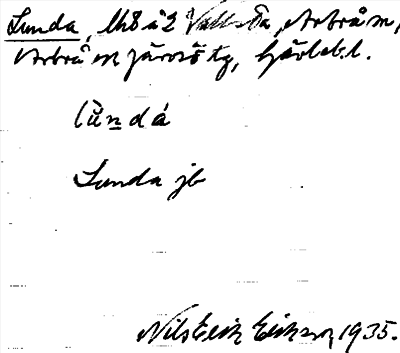 Lunda, 1/8 à 2 Vallsta, Arbrå sn,
Arbrå o Järvsö tg, Gävlebl.
lūndá
Lunda jb
Nils Erik Erikson 1935.